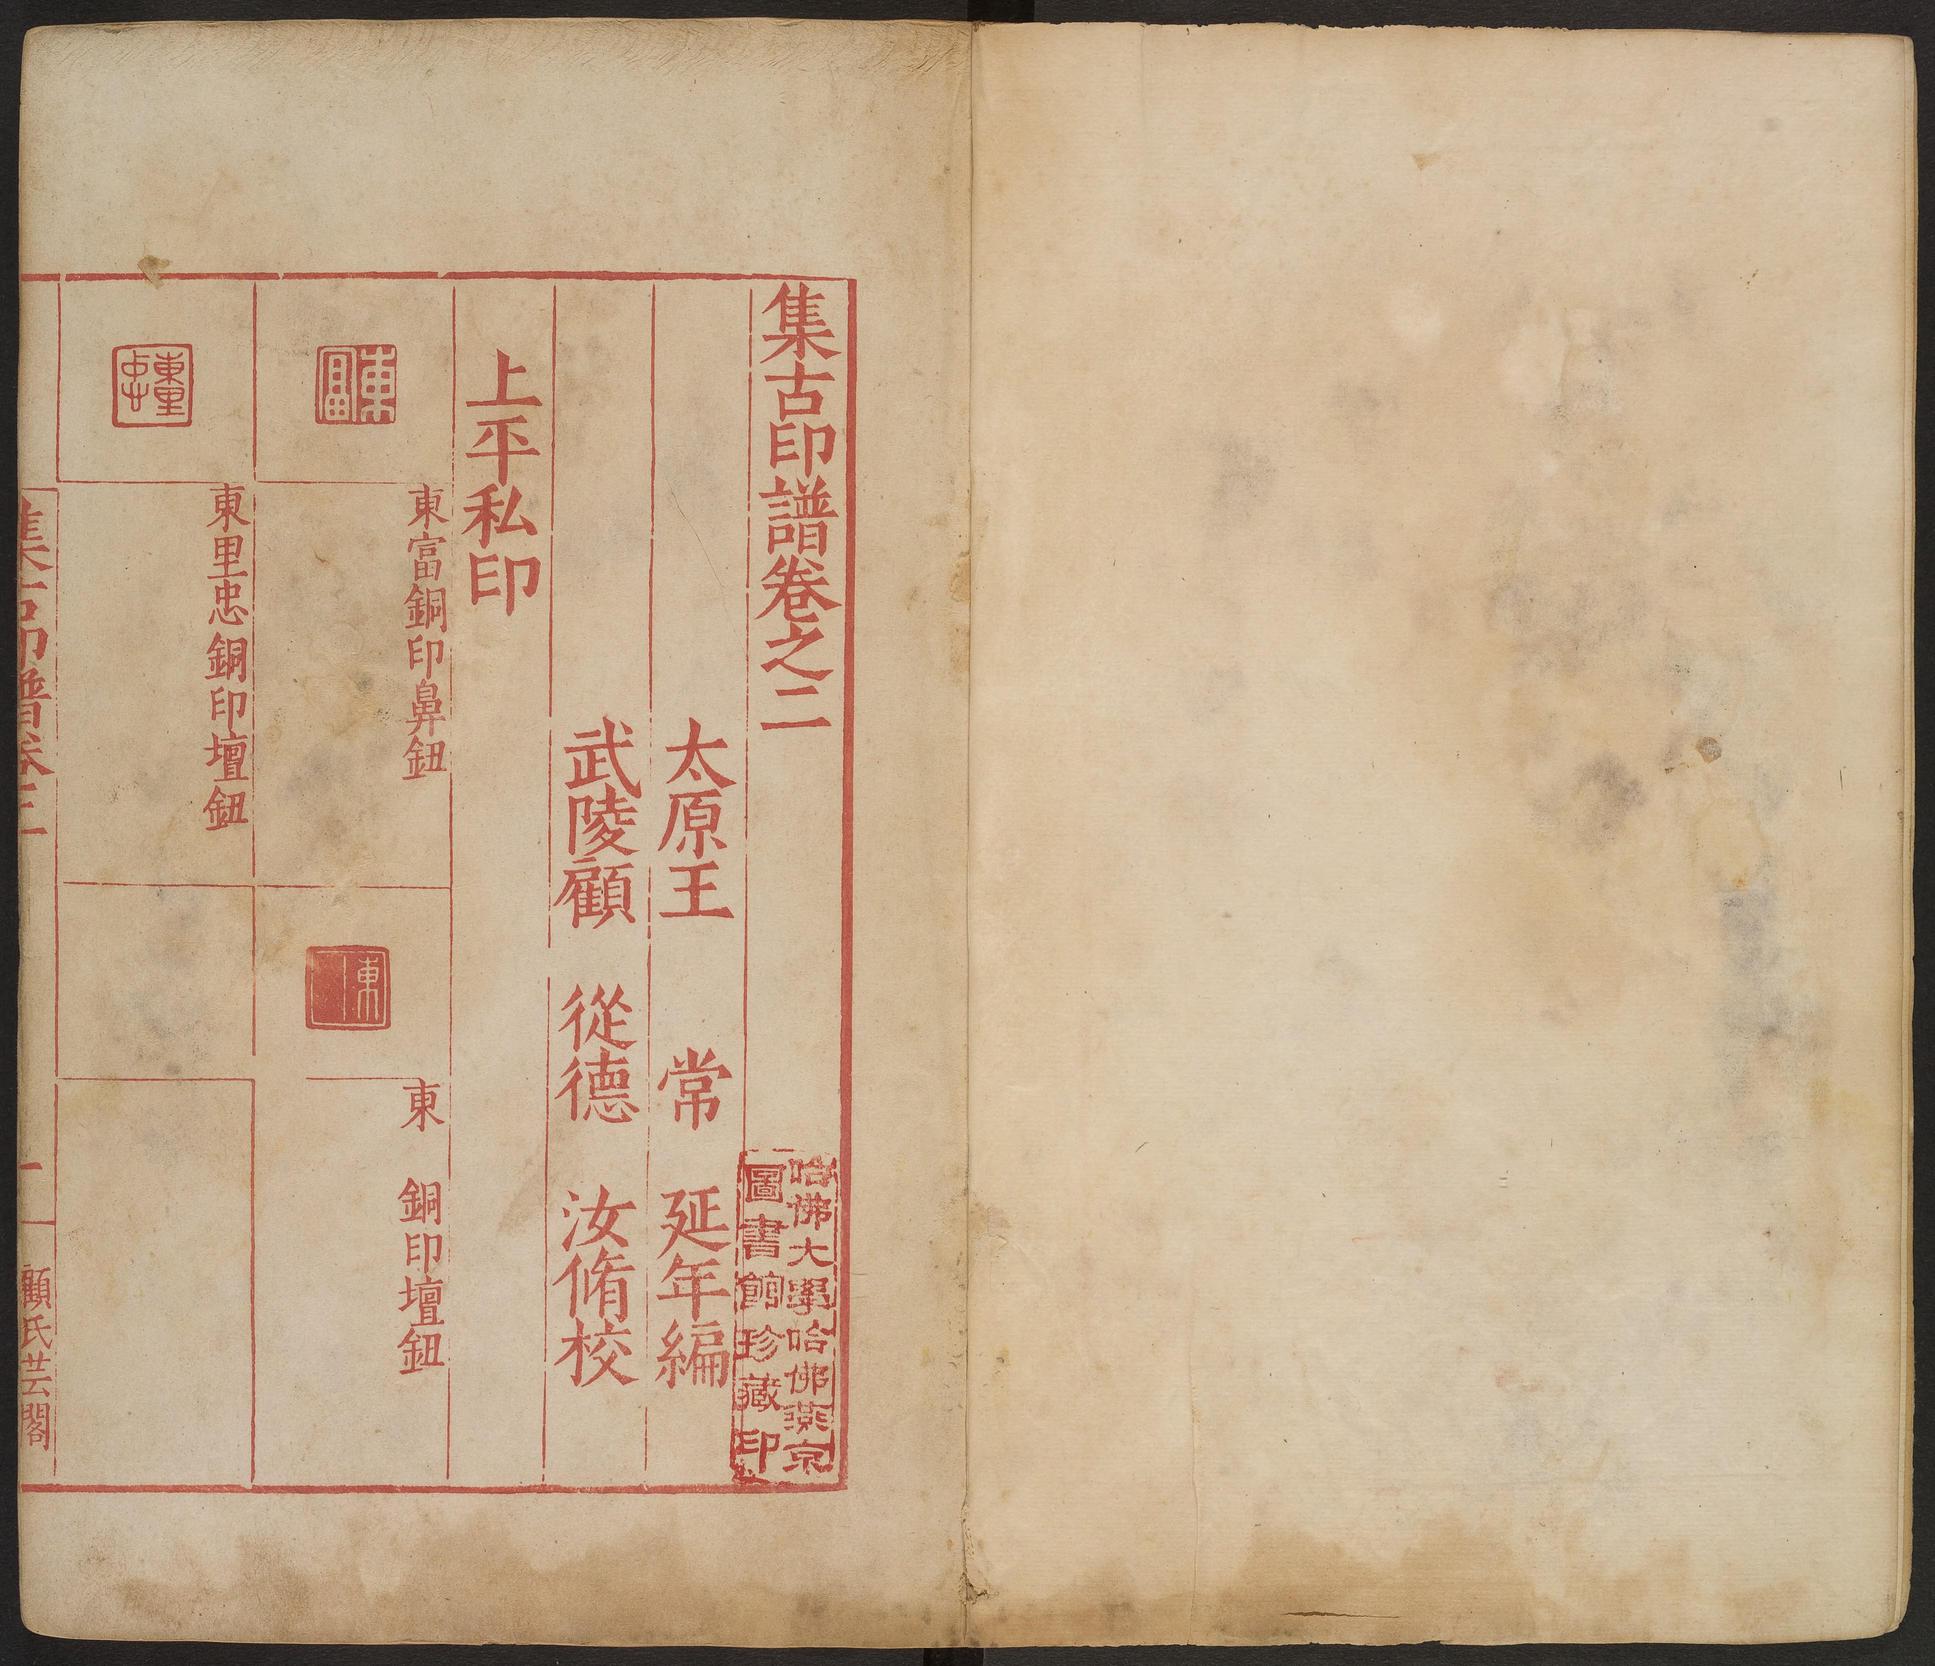 集古印譜卷之二
太原王 常 延年編
武陵顧 從德 汝脩校
哈佛大學哈佛燕京
圖書館珍藏印
上平私印
東富
東富銅印鼻鈕
東
東 銅印壇鈕
東里忠
東里忠銅印壇鈕
集古印譜卷二
一
顧氏芸閣